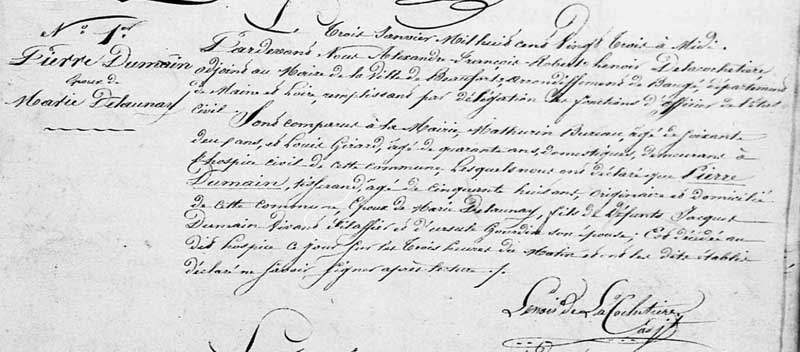 N.º 1.er
Pierre Dumain
époux de
Marie Delaunay
Trois Janvier Mil huit cent Vingt Trois à Midi.
Pardevant Nous Alexandre François Robert Lenoir Delacochetiere
adjoint au Maire de la Ville de Beaufort, arrondissement de Baugé, département
de Maine et Loire, remplissant par délégation les fonctions d'officier de l'état
Civil
Sont comparus à la Mairie, Mathurin Bureau, âgé de soixante
deux ans, et Louis Girard, âgé de quarante ans, domestiques, demeurant à
l'hospice civil de cette commune, lesquels nous ont déclaré que Pierre
Dumain, tisserand, âgé de cinquante huit ans, originaire et domicilié
de cette commune, Epoux de Marie Delaunay, fils de défunts Jacques
Dumain Vivant filassier et d'ursule son épouse; Est décédé au
dit hospice ce jour sur les Trois heures du Matin et ont les dits établis
déclaré ne savoir signer après lecture ./.
Lenoir de La Cochetiere
adjt